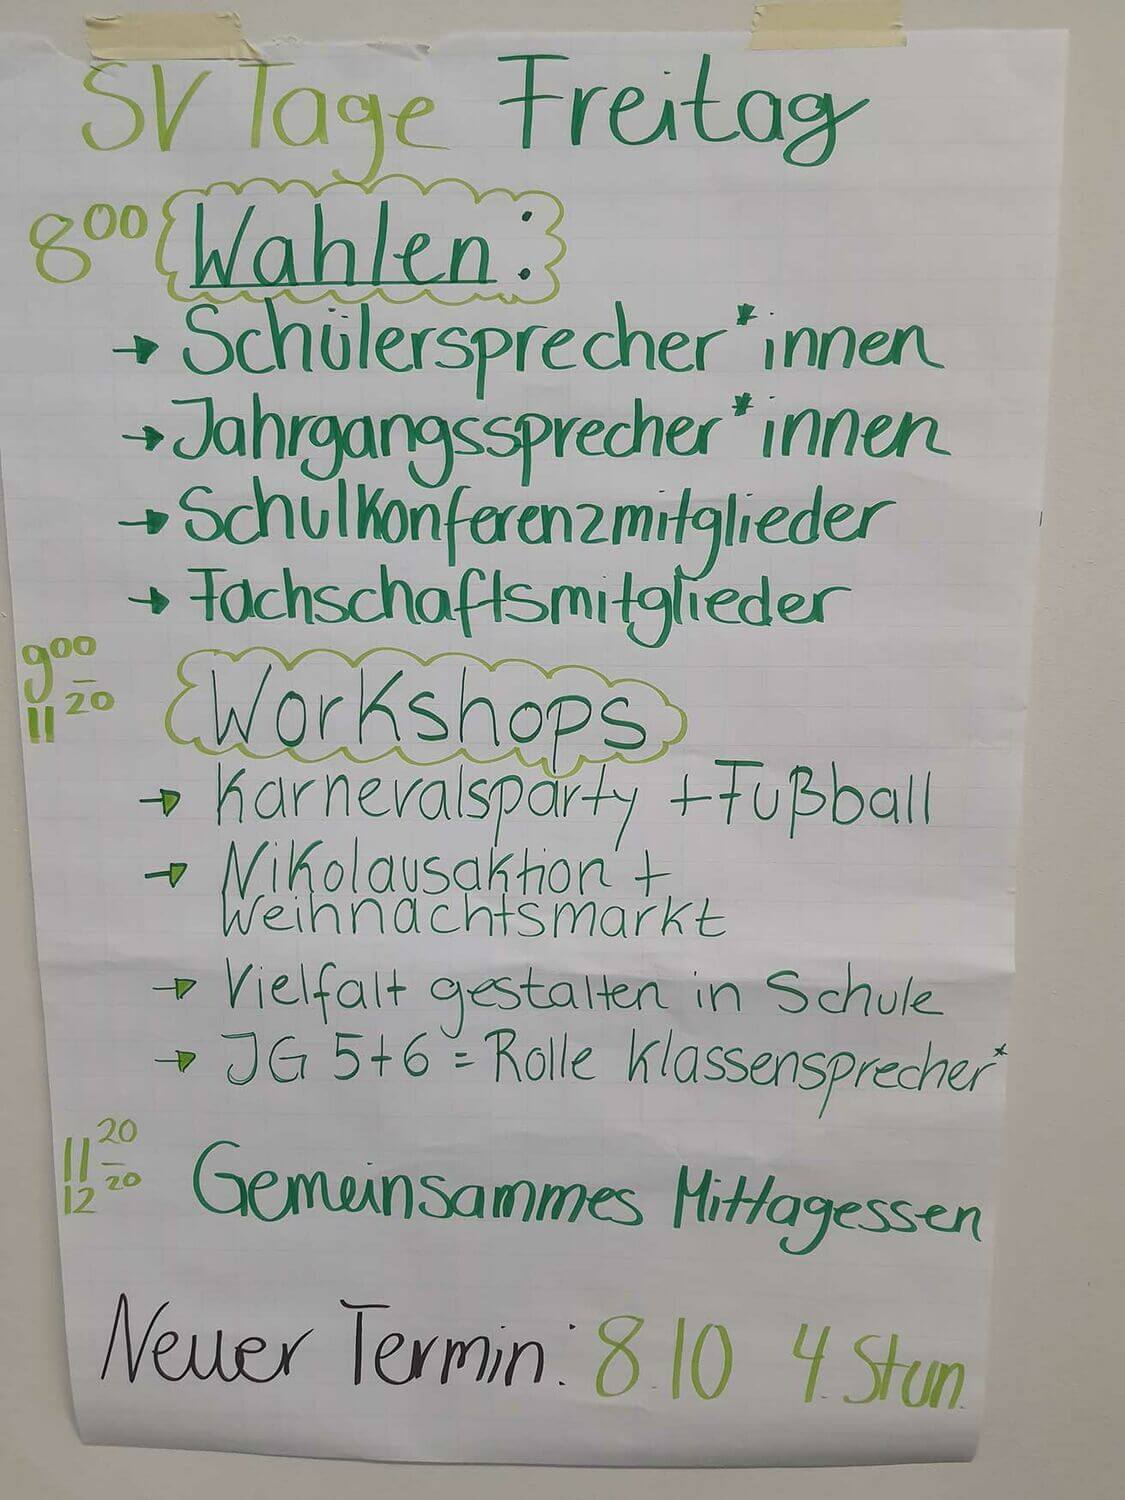 SV Tage Freitag
8 00 Wahlen:
→ Schülersprecher*innen
→ Jahrgangssprecher*innen
→ Schulkonferenzmitglieder
→ Fachschaftsmitglieder
9 00 – 11 20 Workshops
→ Karnevalsparty + Fußball
→ Nikolausaktion +
Weihnachtsmarkt
→ Vielfalt gestalten in Schule
→ JG 5+6 = Rolle Klassensprecher*
11 20 – 12 20 Gemeinsammes Mittagessen
Neuer Termin: 8.10 4. Stun.